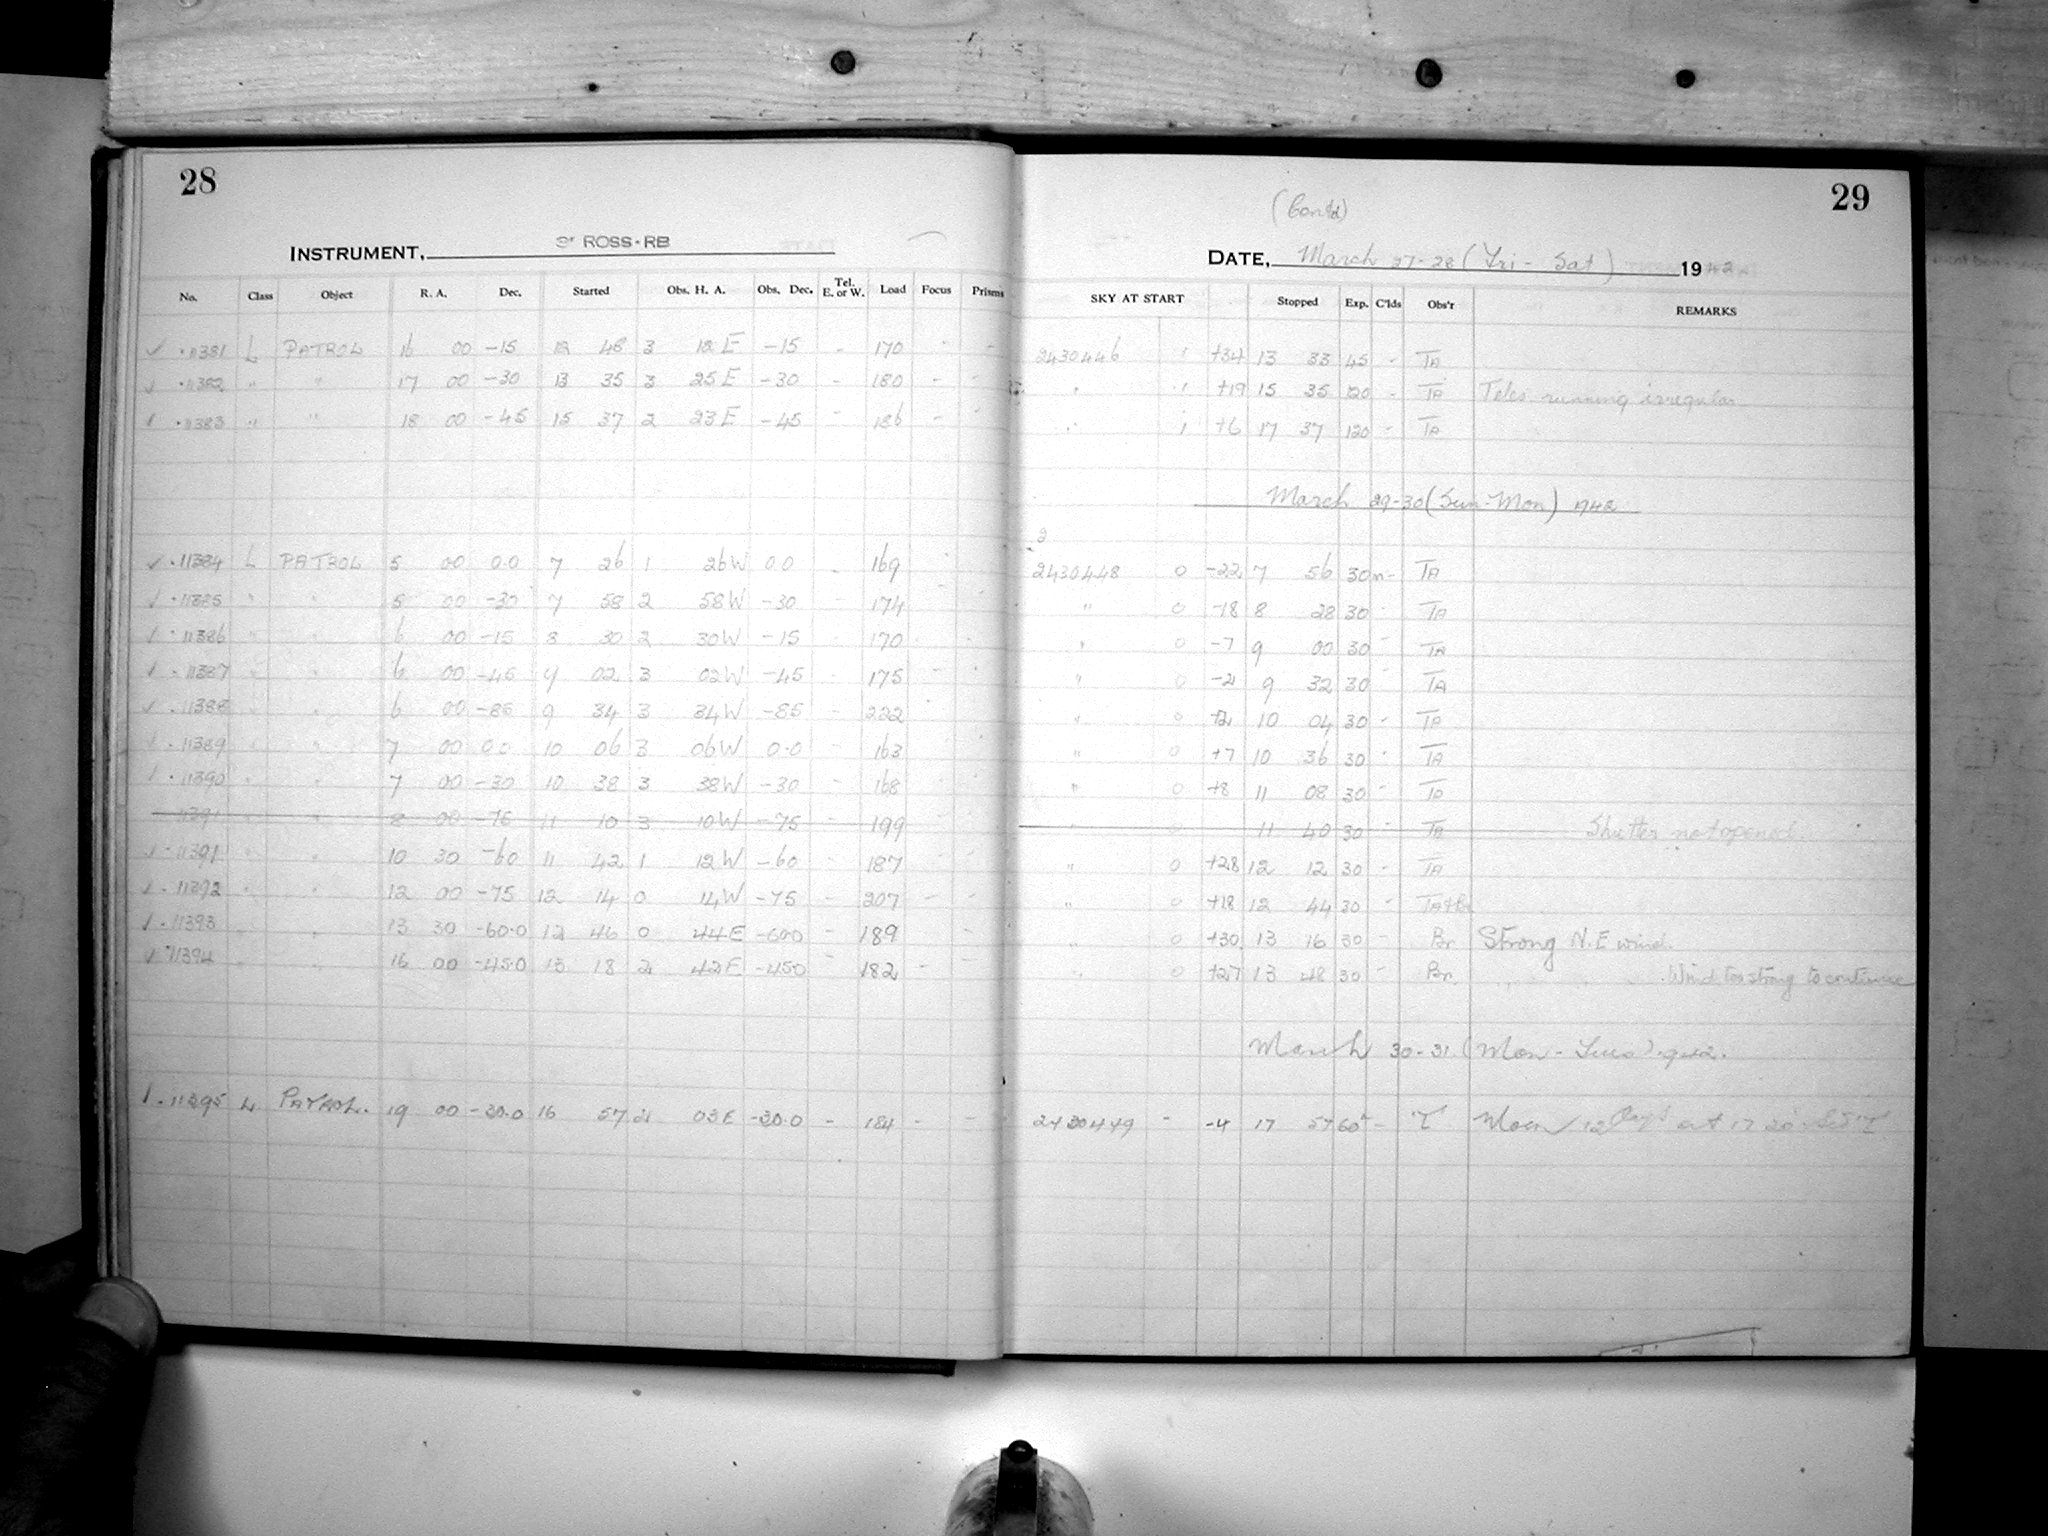 28
INSTRUMENT, 3" ROSS-RB
No. Class Object R. A. Dec. Started Obs. H. A. Obs. Dec. Tel. E. or W. Load Focus Prisms
✓ 11381 L PATROL 16 00 -15 12 48 3 12 E -15 - 170 - -
✓ 11382 " " 17 00 -30 13 35 3 25 E -30 - 180 - -
✓ 11383 " " 18 00 -45 15 37 2 23 E -45 - 186 - -
✓ 11384 L PATROL 5 00 0.0 7 26 1 26 W 0.0 - 169
✓ 11385 " " 5 00 -30 7 58 2 58 W -30 - 174
✓ 11386 " " 6 00 -15 8 30 2 30 W -15 - 170
✓ 11387 " " 6 00 -45 9 02 3 02 W -45 - 175
✓ 11388 " " 6 00 -85 9 34 3 34 W -85 - 222
✓ 11389 " " 7 00 0.0 10 06 3 06 W 0.0 - 163
✓ 11390 " " 7 00 -30 10 38 3 38 W -30 - 168
11391 " " 8 00 -75 11 10 3 10 W -75 - 199
✓ 11391 " " 10 30 -60 11 42 1 12 W -60 - 187
✓ 11392 " " 12 00 -75 12 14 0 14 W -75 - 207 - -
✓ 11393 " " 13 30 -60.0 12 46 0 44 E -60.0 - 189
✓ 11394 " " 16 00 -45.0 13 18 2 42 E -45.0 - 182 - -
✓ 11395 L PATROL. 19 00 -30.0 16 57 2 03 E -30.0 - 184 - -
29
(Contd)
DATE, March 27-28 (Fri - Sat) 1942
SKY AT START Stopped Exp. C'lds Obs'r REMARKS
2430446 1 +34 13 33 45 - TA
" 1 +19 15 35 120 - TA Teles running irregular
" 1 +6 17 37 120 - TA
March 29-30 (Sun-Mon) 1942
2430448 0 -22 7 56 30 - TA
" 0 -18 8 28 30 - TA
" 0 -7 9 00 30 - TA
" 0 9 32 30 - TA
" 0 10 04 30 - TA
" 0 +7 10 36 30 - TA
" 0 +8 11 08 30 - TA
" 0 11 40 30 - TA Shutter not opened
" 0 +28 12 12 30 - TA
" 0 +18 12 44 30 - TA+Br
" 0 +30 13 16 30 - Br Strong N.E wind.
" 0 +27 13 48 30 - Br. " " " Wind too strong to continue
March 30-31 (Mon - Tues) 1942.
2430449 - -4 17 57 60 - T Moon 12 Days at 17 20